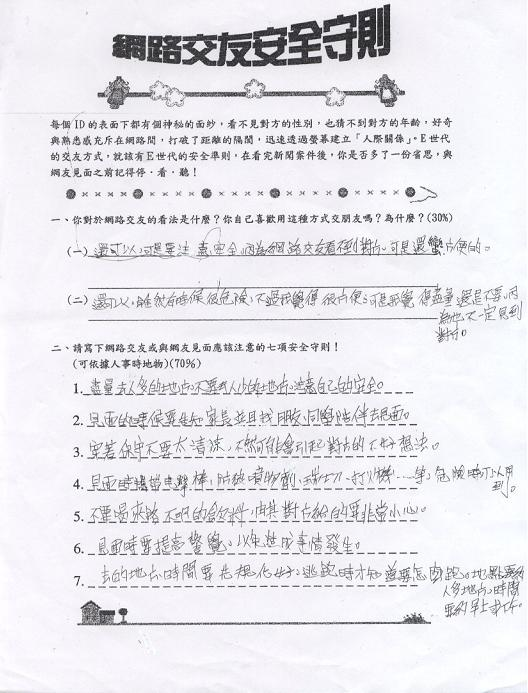 網路交友安全守則
每個 ID 的表面下都有個神秘的面紗，看不見對方的性別，也猜不到對方的年齡，好奇
與熟悉感充斥在網路間，打破了距離的隔閡，迅速透過螢幕建立「人際關係」。E世代
的交友方式，就該有E世代的安全準則，在看完新聞案件後，你是否多了一份省思，與
網友見面之前記得停．看．聽！
一、你對於網路交友的看法是什麼？你自己喜歡用這種方式交朋友嗎？為什麼？(30%)
(一) 還可以，可是要注意安全，因為網路交友看不到對方，可是還蠻方便的。
(二) 還可以，雖然有時候很危險，不過我覺得很方便，可是我覺得盡量還是不要，因
為他不一定見到
對方。
二、請寫下網路交友或與網友見面應該注意的七項安全守則！
(可依據人事時地物)(70%)
1. 盡量去人多的地方，不要去人少的地方，注意自己的安全。
2. 見面的時候要告知家長並且找朋友、同學陪伴去見面。
3. 穿著保守不要太清涼，不然可能會引起對方的不好想法。
4. 見面時攜帶電擊棒、防狼噴物劑、瑞士刀、打火機……等，危險時可以用
到。
5. 不要喝來路不明的飲料，由其對方給的要非常小心。
6. 見面時要提高警覺，以免造成事情發生。
7. 去的地方、時間要先規化好，逃跑時才知道要怎麼跑。地點要約
人多地方、時間
要約早上或下午。